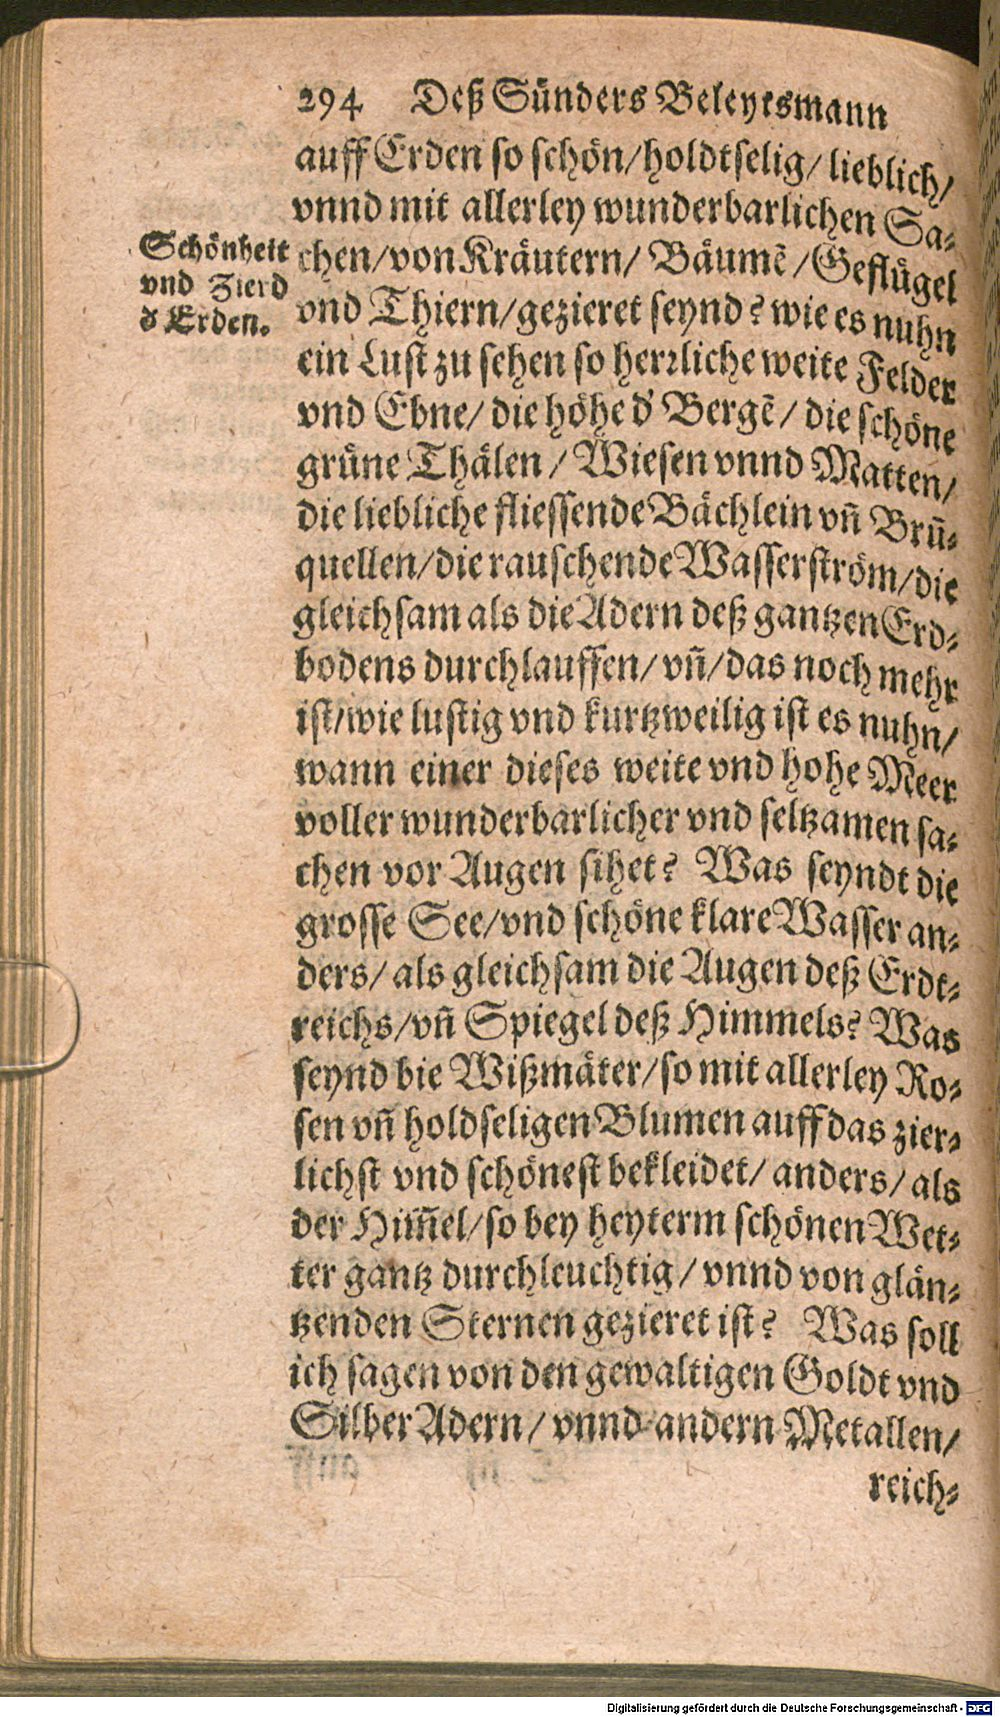 294 Deß Sünders Beleytsmann
auff Erden so schön/holdtselig/ lieblich/
vnnd mit allerley wunderbarlichen Sa-
chen/von Kräutern/ Bäumē/Geflügel
vnd Thiern/gezieret seynd? wie es nuhn
ein Lust zu sehen so herrliche weite Felder
vnd Ebne/ die höhe d' Bergē/ die schöne
grüne Thälen / Wiesen vnnd Matten/
die liebliche fliessende Bächlein vñ Brũ-
quellen/die rauschende Wasserström/die
gleichsam als die Adern deß gantzen Erd-
bodens durchlauffen/ vñ/das noch mehr
ist/wie lustig vnd kurtzweilig ist es nuhn/
wann einer dieses weite vnd hohe Meer
voller wunderbarlicher vnd seltzamen sa-
chen vor Augen sihet? Was seyndt die
grosse See/vnd schöne klare Wasser an-
ders/ als gleichsam die Augen deß Erdt-
reichs/vñ Spiegel deß Himmels? Was
seynd bie Wißmäter/so mit allerley Ro-
sen vñ holdseligen Blumen auff das zier-
lichst vnd schönest bekleidet/ anders/ als
der Him̃el/so bey heyterm schönen Wet-
ter gantz durchleuchtig/ vnnd von glän-
tzenden Sternen gezieret ist? Was soll
ich sagen von den gewaltigen Goldt vnd
Silber Adern/ vnnd andern Metallen/
reich-
Schönheit
vnd Zierd
d' Erden.
Digitalisierung gefördert durch die Deutsche Forschungsgemeinschaft - DFG